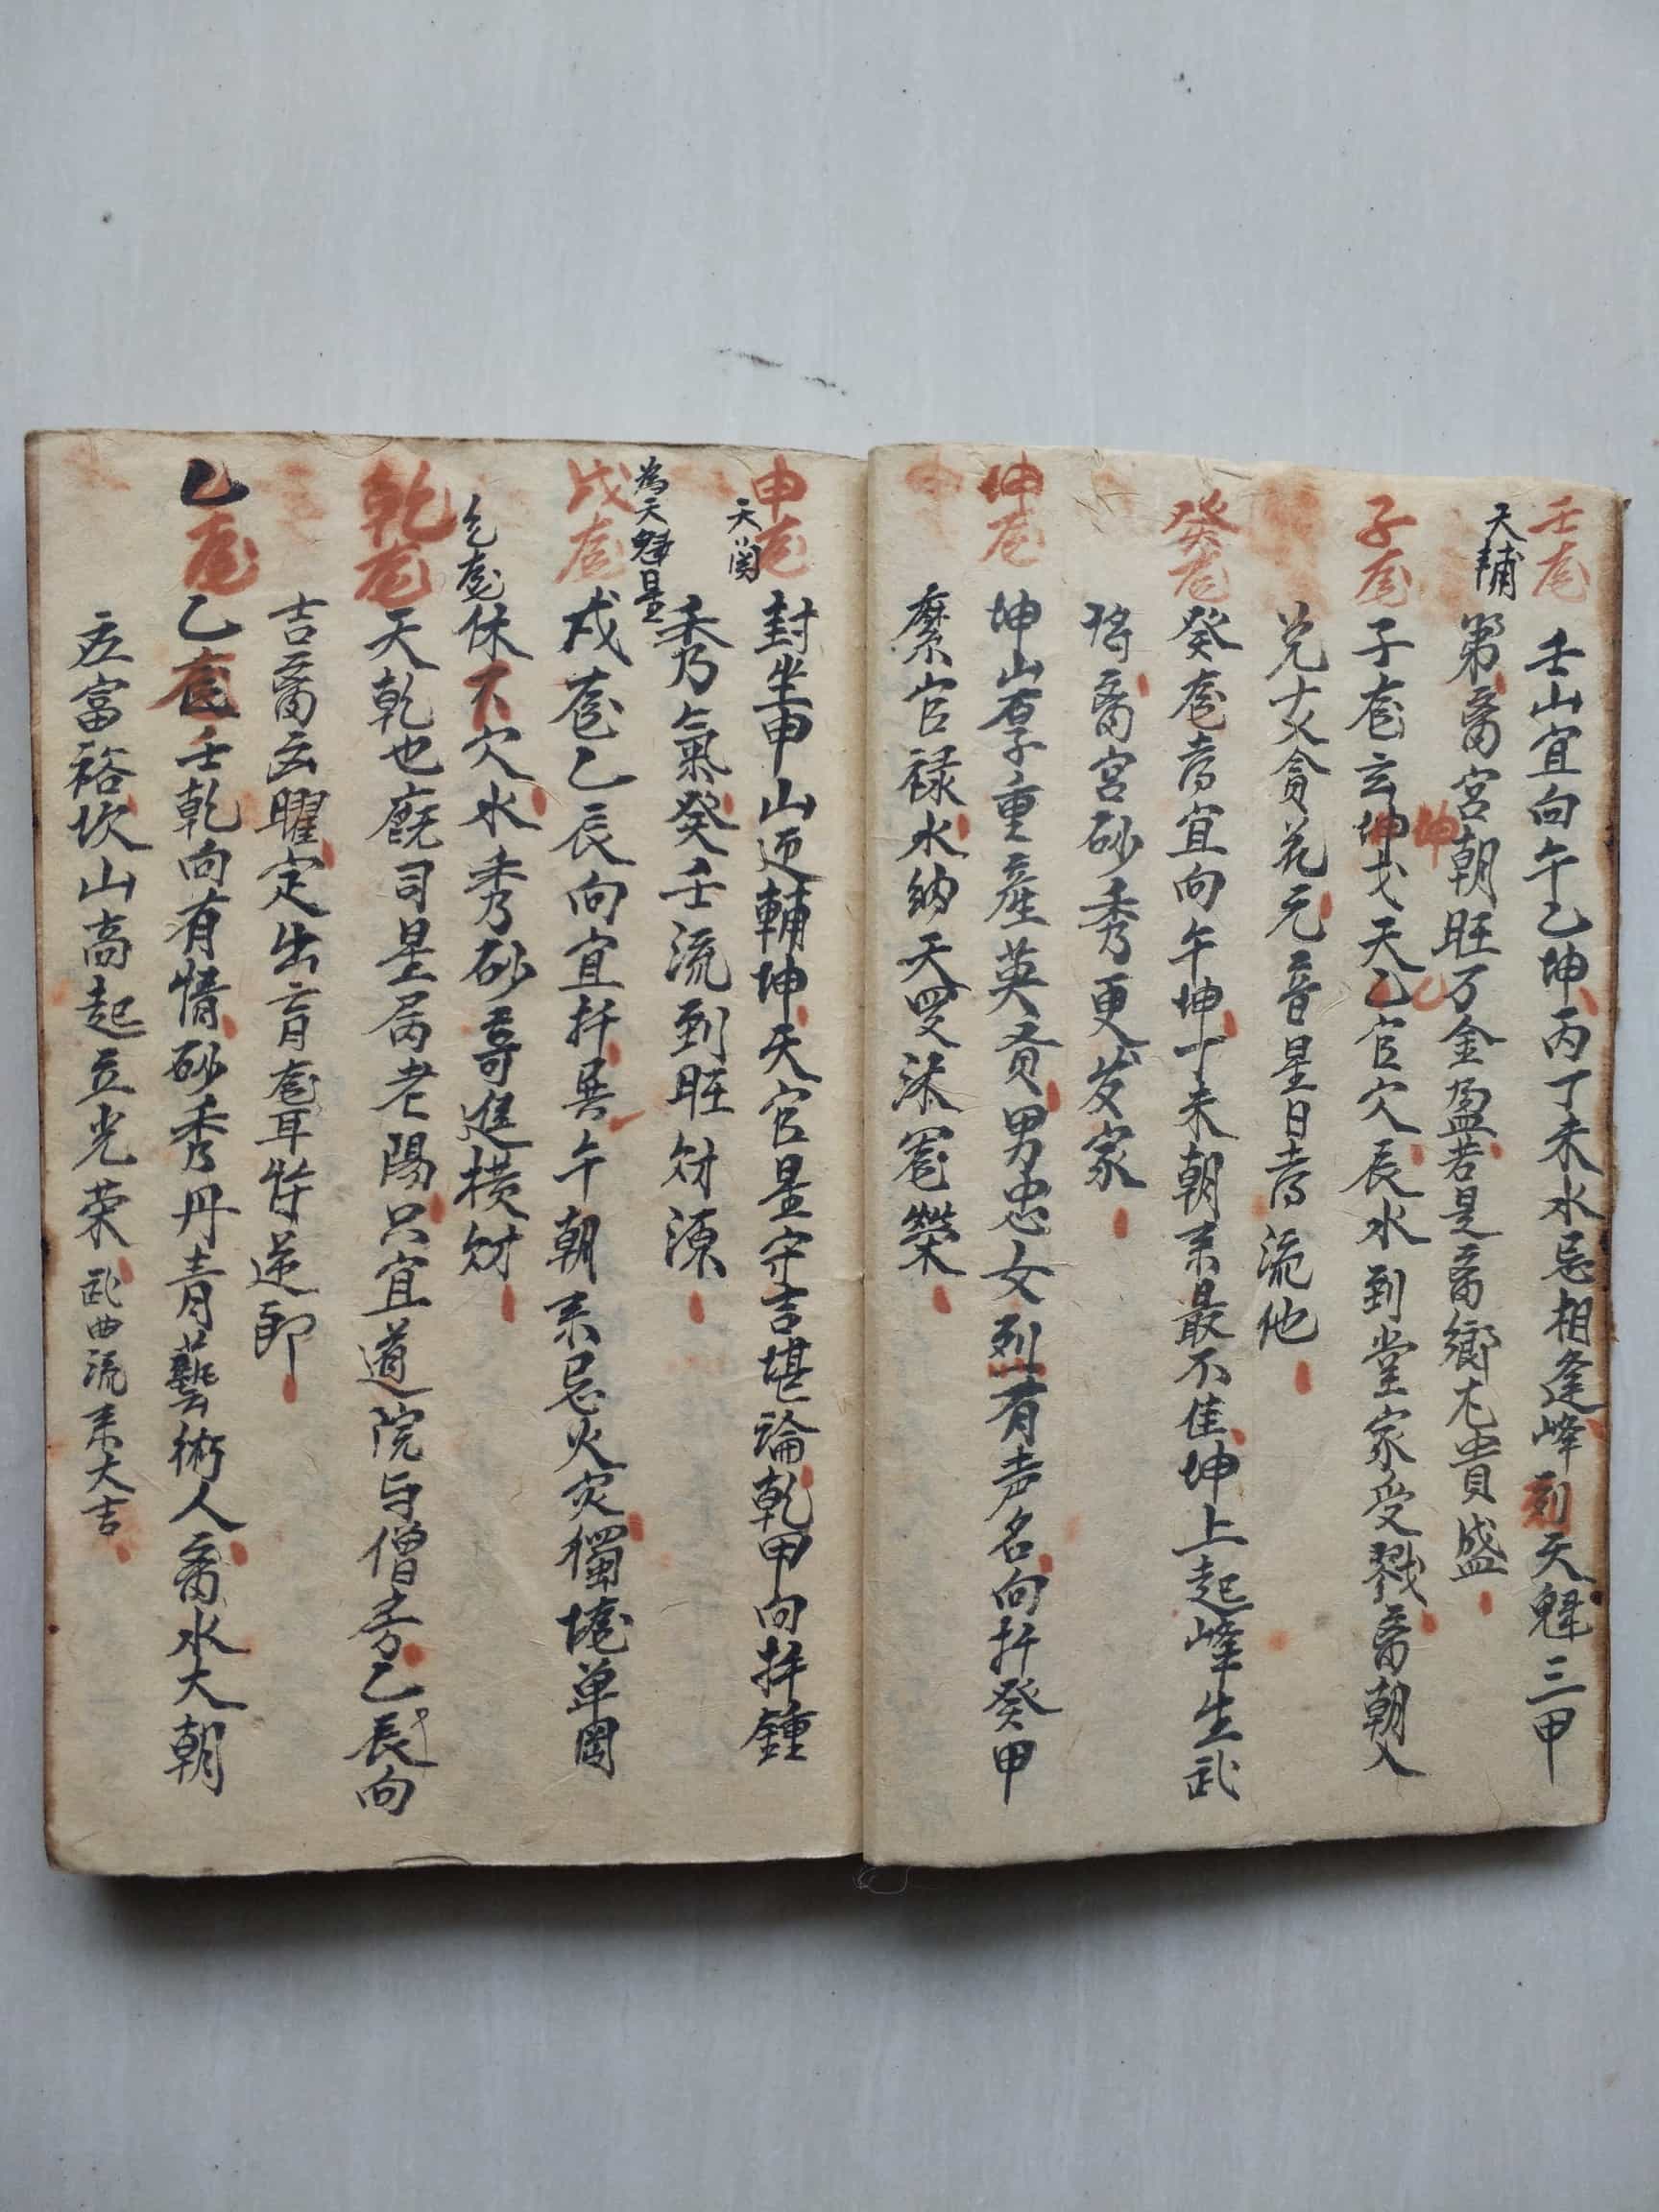 壬龍
壬山宜向午乙坤丙丁未水忌相逢峰列天魁三甲
天輔
第 宮朝旺万金盈若是 鄉尤貴盛
子龍
子龍玄坤戈天乙官穴辰水到堂家受戮 朝入
坤
乙
兌 貪花元音星日 流他
癸龍
癸龍 宜向午坤丁未朝来最不佳坤上起峰生武
将 宮砂秀更发家
坤龍
坤山厚重産英賢男忠女烈有声名向扦癸甲
縻官禄水納天 冤榮
申龍
天関
封坐申山迎輔坤天官星守吉堪論乾甲向扦鍾
為天魁星
秀氣癸壬流到旺财源
戌龍
戌龍乙辰向宜扦巽午朝来忌火灾獨 单岡
乞龍
休下穴水秀砂哥進横财
乾龍
天乾也 司星居老陽只宜道院与僧房乙辰向
吉 云曜定出盲聋耳 逆郎
乙龍
乙龍壬乾向有情砂秀丹青藝術人 水大朝
富裕坎山高起立光荣 武曲流来大吉